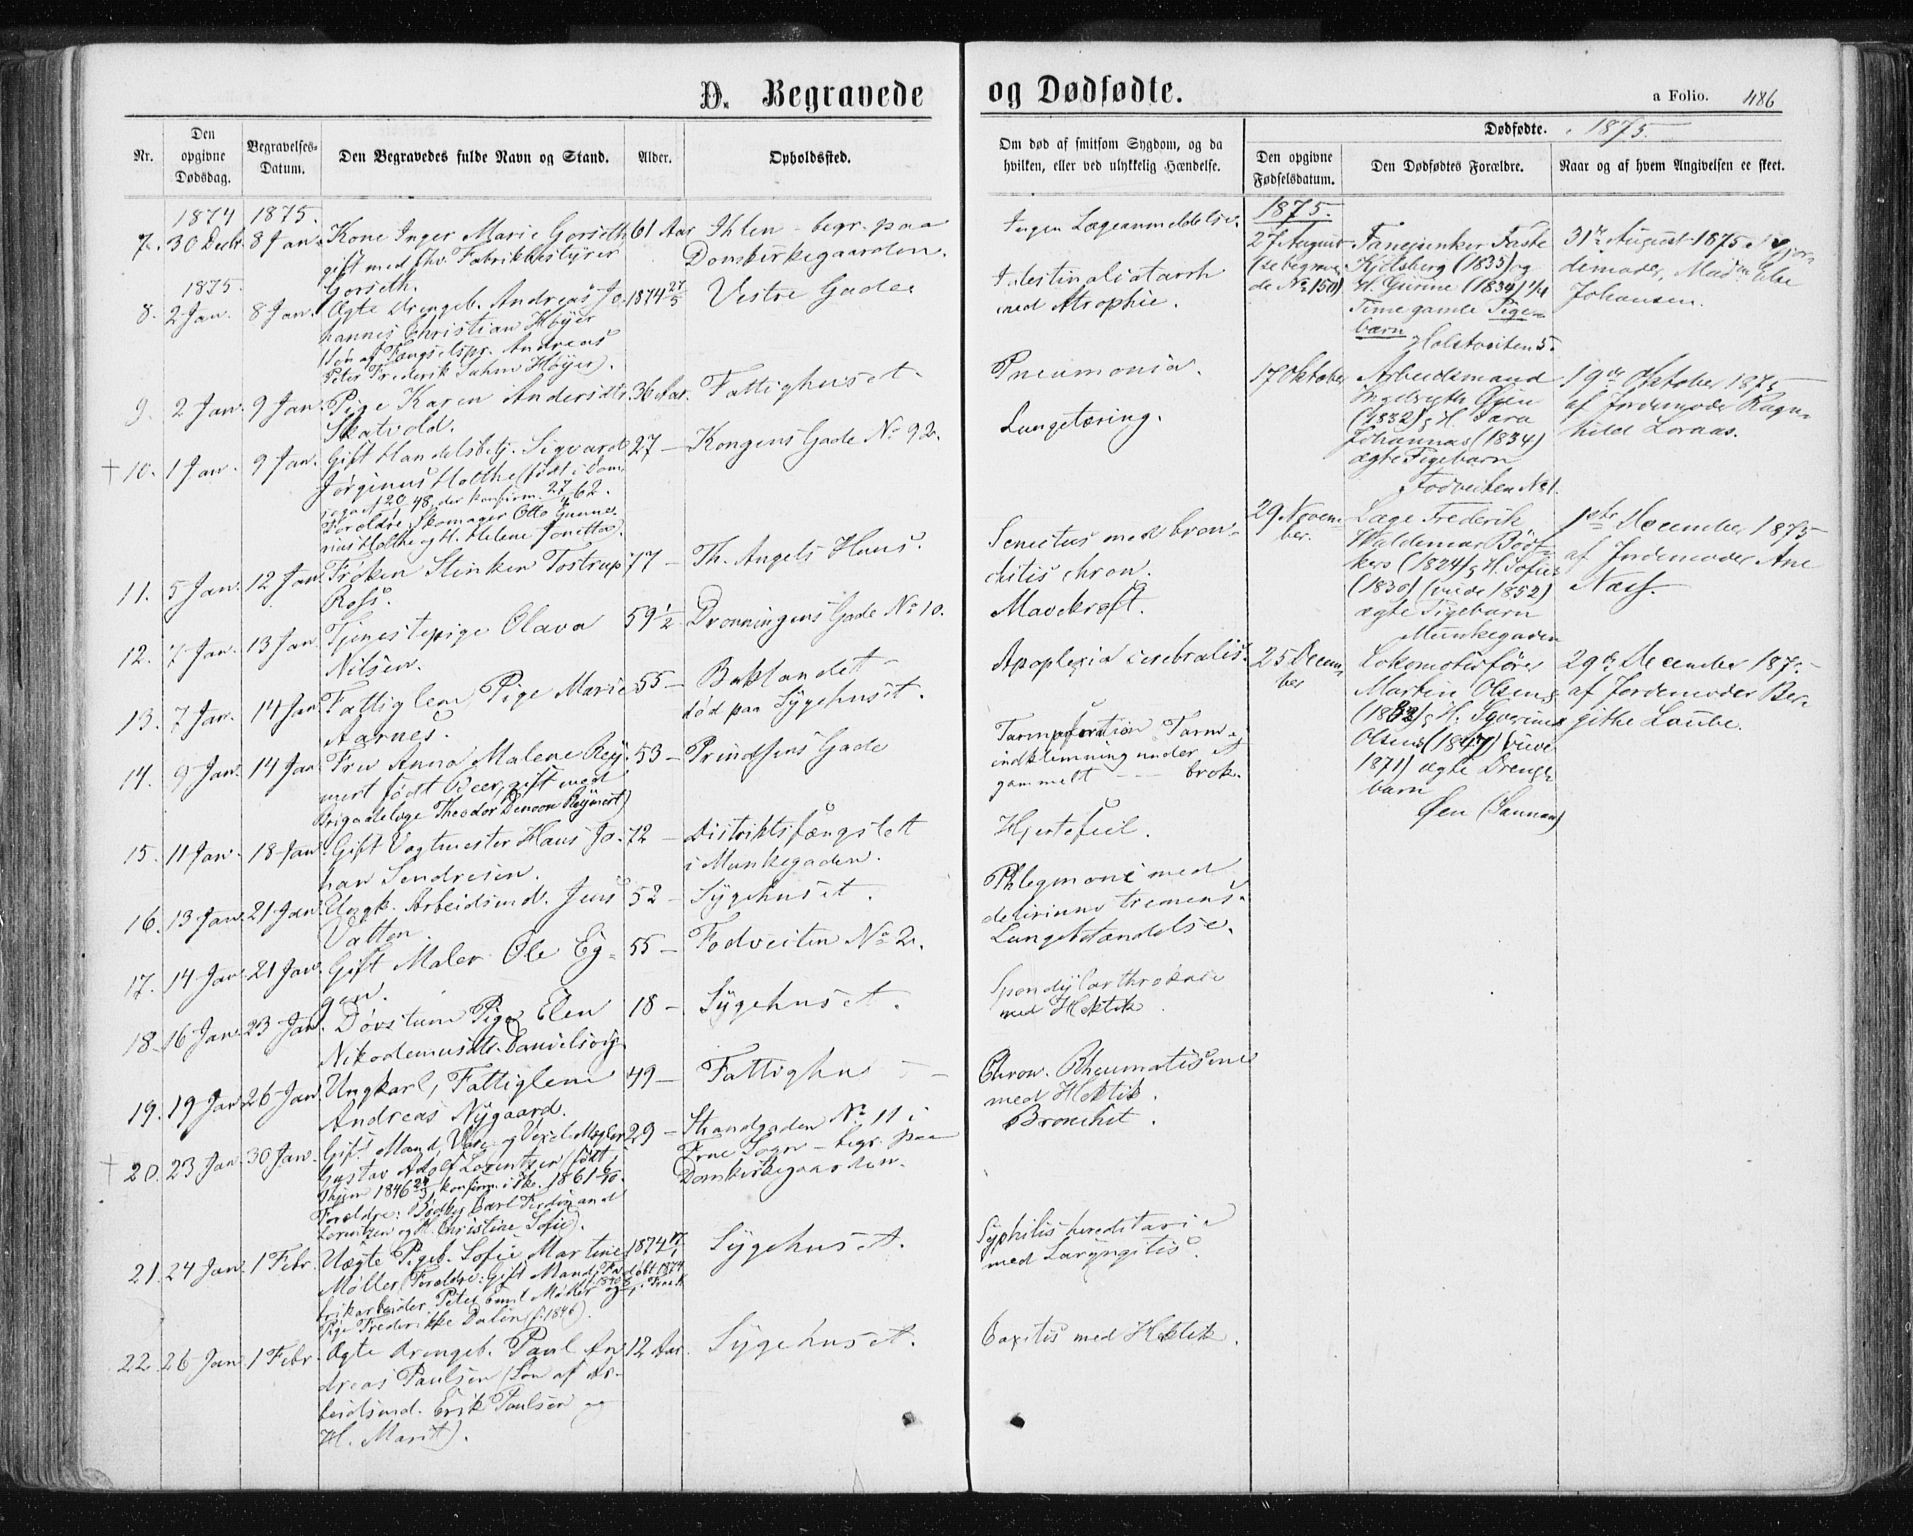 D. Begravede og Dødfødte.
a Folio. 486
Nr.
Den opgivne Dødsdag.
Begravelses-Datum.
Den Begravedes fulde Navn og Stand.
Alder.
Opholdssted.
Om død af smitsom Sygdom, og da
hvilken, eller ved ulykkelig Hændelse.
Dødfødte. 1875.
Den opgivne Fødselsdatum.
Den Dødfødtes Forældre.
Naar og af hvem Angivelsen er skeet.
1874 1875.
7. 30 Decbr. 8 Jan. Kone Inger Marie Gorseth 61 Aar Ihlen - begr. paa
gift med Fabrikbestyrer Domkirkegaarden.
Gorseth.
Ingen Lægeanmeldelse.
1875.
8. 2 Jan. 8 Jan. Ægte Drengeb. Andreas Jo- 1874 27/5 Vestre Gade
hannes Christian Høyer
(Søn af Fængselspr. Andreas
Peter Frederik Sahm Høyer).
Intestinalcatarrh
med Atrophie.
9. 2 Jan. 9 Jan. Pige Karen Andersdtr. 36 Aar. Fattighuset
Skatvold.
Pneumonia.
† 10. 1 Jan. 9 Jan. Gift Handelsbetj. Sigvard 27 — Kongens Gade No 92.
Jørginus Holthe (født i Dom-
48, der konfirm. 62.
Forældre: Skomager Otto Gunne-
rius Holthe og H. Helene Jonetta).
Lungetæring.
11. 5 Jan. 12 Jan. Frøken Stinken Tostrup 77 — Th. Angels Huus.
Ross.
Senectus med bron-
chitis chron.
12. 7 Jan. 13 Jan. Tjenestepige Olava 59½ Dronningens Gade No 10.
Nilsen.
Mavekræft.
13. 7 Jan. 14 Jan. Fattiglem Pige Marie 55 — Baklandet
Aarnes. død paa Sygehuset.
Apoplexia cerebralis.
14. 9 Jan. 14 Jan. Fru Anna Malene Rey- 53 — Prindsens Gade
mert født Beer, gift med
Brigadelæge Theodor Denoon Reymert)
Tarmperforation Tarm-
indklemning under et
gammelt — brok.
15. 11 Jan. 18 Jan. Gift Vagtmester Hans Jo- 72 — Distriktsfængslet
han Sendresen. i Munkegaden.
Hjertefeil.
16. 13 Jan. 21 Jan. Ungk. Arbeidsmd. Jens 52 — Sygehuset.
Vatten.
Phlegmone med
delirium tremens.
17. 14 Jan. 21 Jan. Gift Maler Ole Eg- 55 — Fodveiten No 2.
gen.
Lungebetændelse.
18. 16 Jan. 23 Jan. Døvstum Pige Elen 18 — Sygehuset.
Nikodemusdtr. Danielsvig
Spondylarthrokace
med Hektik.
19. 19 Jan. 26 Jan. Ungkarl, Fattiglem 49 — Fattighu — —
Andreas Nygaard.
Chron. Rheumatisme
med Hektik.
† 20. 23 Jan. 30 Jan. Gift Mand, Vare- og Vexel-Mægler 29 — Strandgaden No 11 i
Gustav Adolf Lorentzen (født i Frue Sogn — begr. paa
1846, konfirm. i 1861. Domkirkegaarden.
Forældre: Carl Ferdinand
Lorentzen og H. Christine Sofie).
Bronchit.
21. 24 Jan. 1 Febr. Uægte Pigeb. Sofie Martine 1874 Sygehuset.
Møller (Forældre: Gift Mand, Fa-
brikarbeider Peter Emil Møller og
Pige Frederikke Dalin (f. 1846).
Syphilis hereditaria
med Laryngitis.
22. 26 Jan. 1 Febr. Ægte Drengeb. Paul An- 12 Aar. Sygehuset.
dreas Paulsen (Søn af Ar-
beidsmd. Erik Paulsen og
H. Marit).
Coxitis med Hektik.
1875.
27 August Fanejunker Faste 31te August 1875 af Jor-
(se begrave- Kjelsberg (1835) og demoder, Madm Else
de No 150) H. Gurine (1839) 1/4 Johansen.
Time gamle Pige-
barn
Holstveiten 5.
17 Oktober Arbeidsmand 19de Oktober 1875
Øien af Jordemoder Ragn-
(1832) & H. Sara hild Loraas.
Johannas (1834)
ægte Pigebarn
Fodveiten No 1.
29 Novem- Læge Frederik 1ste December 1875
ber. Waldemar af Jordemoder Ane
(1824) & H. Sofie Næss.
(1830) (viede 1852)
ægte Pigebarn
Munkegaden
25 Decem- Lokomotivfører 29de December 187
ber Martin Olsen af Jordemoder Ber-
& H. Severine githe Laube.
Olsen (1847) viede
1871) ægte Drenge-
barn
Øen (Sannan)